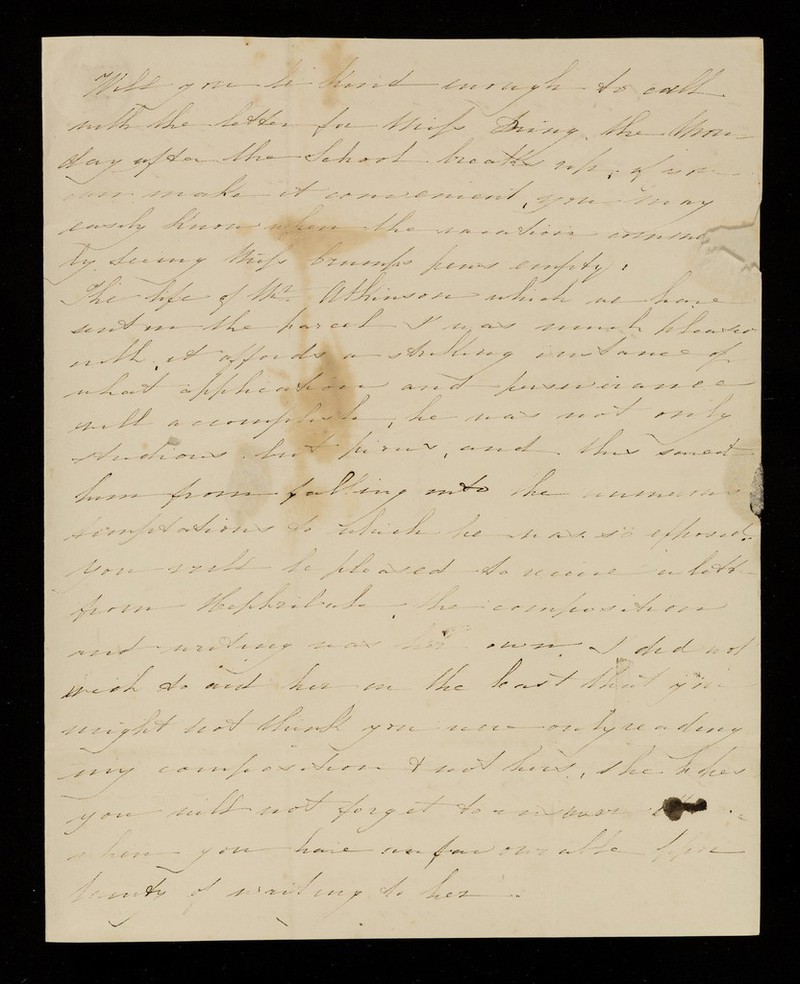 Will you be kind enough to call
with the letter for Miss Bring the Mon-
day after the School breaks up, if you
can make it convenient, you may
easily know when the vacation comm
by seeing Miss Crumps pews empty;
The life of Mr. Atkinson which we have
sent in the parcel I was much pleased
with, it affords a striking instance of
what application and perseverance
will accomplish, he was not only
studious but pious, and this saved
him from falling into the numerous
temptations to which he was so exposed.
You will be pleased to receive a letter
from Hephzibah, the composition
and writing was her own. I did not
wish to aid her in the least that you
might not think you were only reading
my composition & not hers, she hopes
you will not forget to answer it
when you have an favourable Oppor
tunity of writing to her.